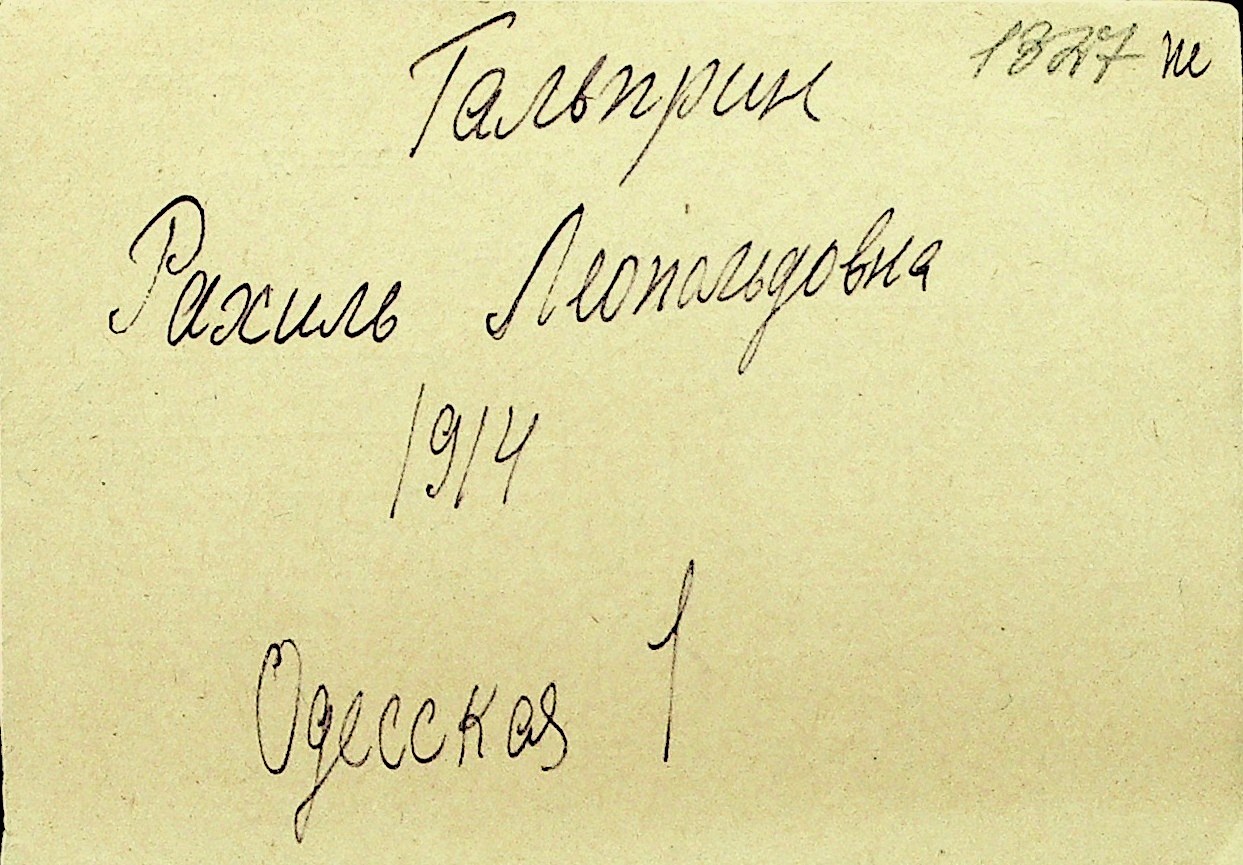 1827 не
Гальприн
Рахиль Леопольдовна
1914
Одесская 1